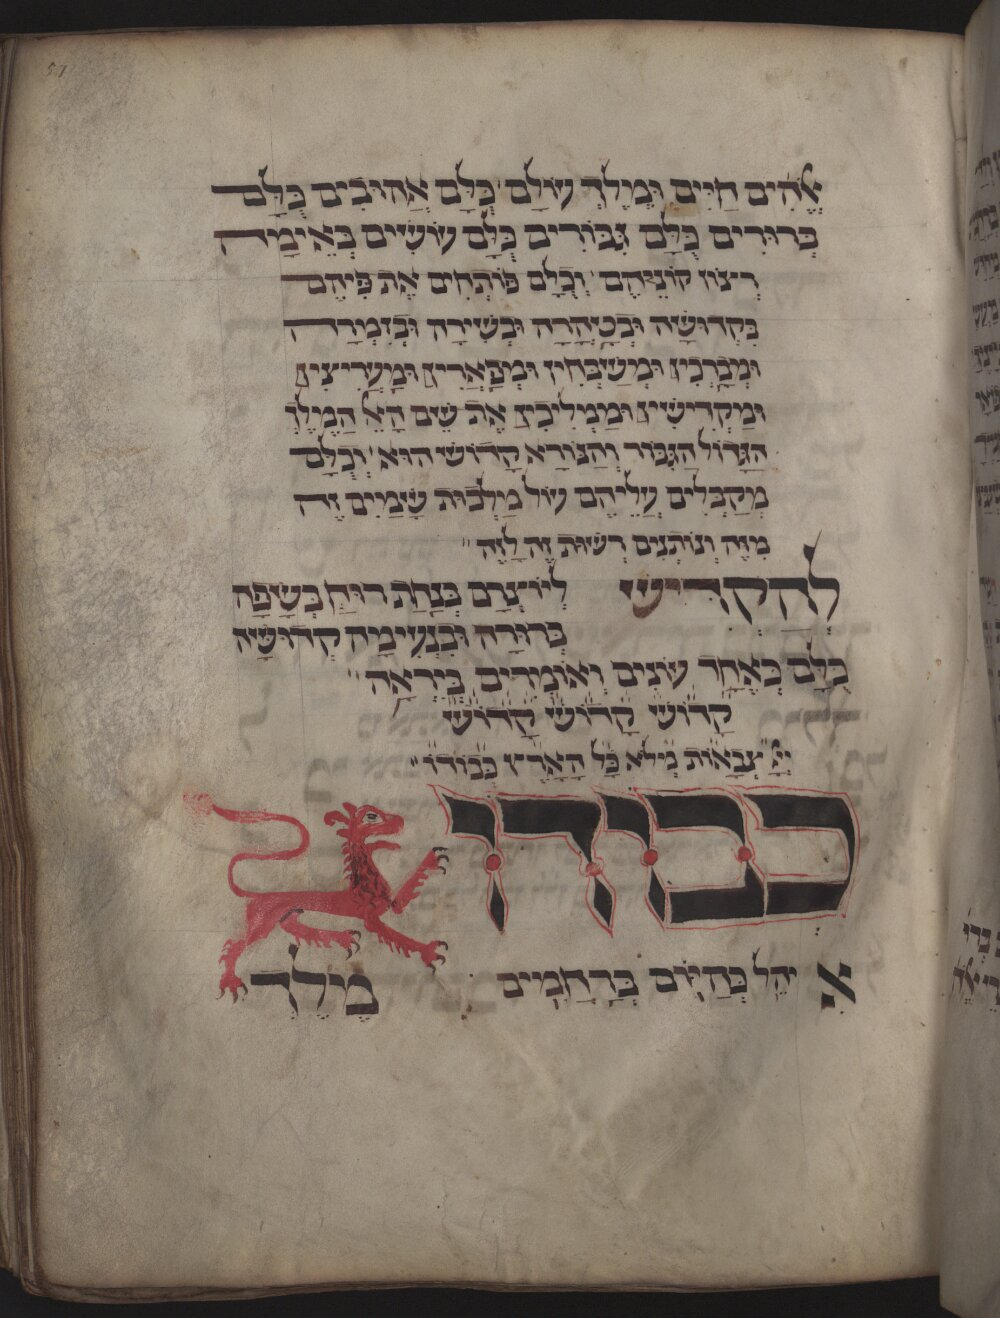 57
אֱלֹהִים חַיִּים וּמֶלֶךְ עוֹלָם׳ כֻּלָּם אֲהוּבִים כֻּלָּם
בְּרוּרִים כֻּלָּם גִּבּוֹרִים כֻּלָּם עוֹשִׂים בְּאֵימָה
רְצוֹן קוֹנֵיהֶם׳ וְכֻלָּם פּוֹתְחִים אֶת פִּיהֶם
בִּקְדוּשָּׁה וּבְטָהֳרָה וּבְשִׁירָה וּבְזִמְרָה
וּמְבָרְכִין וּמְשַׁבְּחִין וּמְפָאֲרִין וּמַעֲרִיצִין
וּמַקְדִּישִׁין וּמַמְלִיכִין אֶת שֵׁם הָאֵל הַמֶּלֶךְ
הַגָּדוֹל הַגִּבּוֹר וְהַנּוֹרָא קָדוֹשׁ הוּא׳ וְכֻלָּם
מְקַבְּלִים עֲלֵיהֶם עוֹל מַלְכוּת שָׁמַיִם זֶה
מִזֶּה וְנוֹתְנִים רְשׁוּת זֶה לָזֶה
לְהַקְדִּישׁ לְיוֹצְרָם בְּנַחַת רוּחַ בְּשָׂפָה
בְּרוּרָה וּבִנְעִימָה קְדוּשָּׁה
כֻּלָּם כְּאֶחָד עוֹנִים וְאוֹמְרִים בְּיִרְאָה
קָדוֹשׁ קָדוֹשׁ קָדוֹשׁ
צְבָאוֹת מְלֹא כָל הָאָרֶץ כְּבוֹדוֹ
כְּבוֹדוֹ
אִיהֵל כְּהַיּוֹם בְּרַחֲמִים מֶלֶךְ